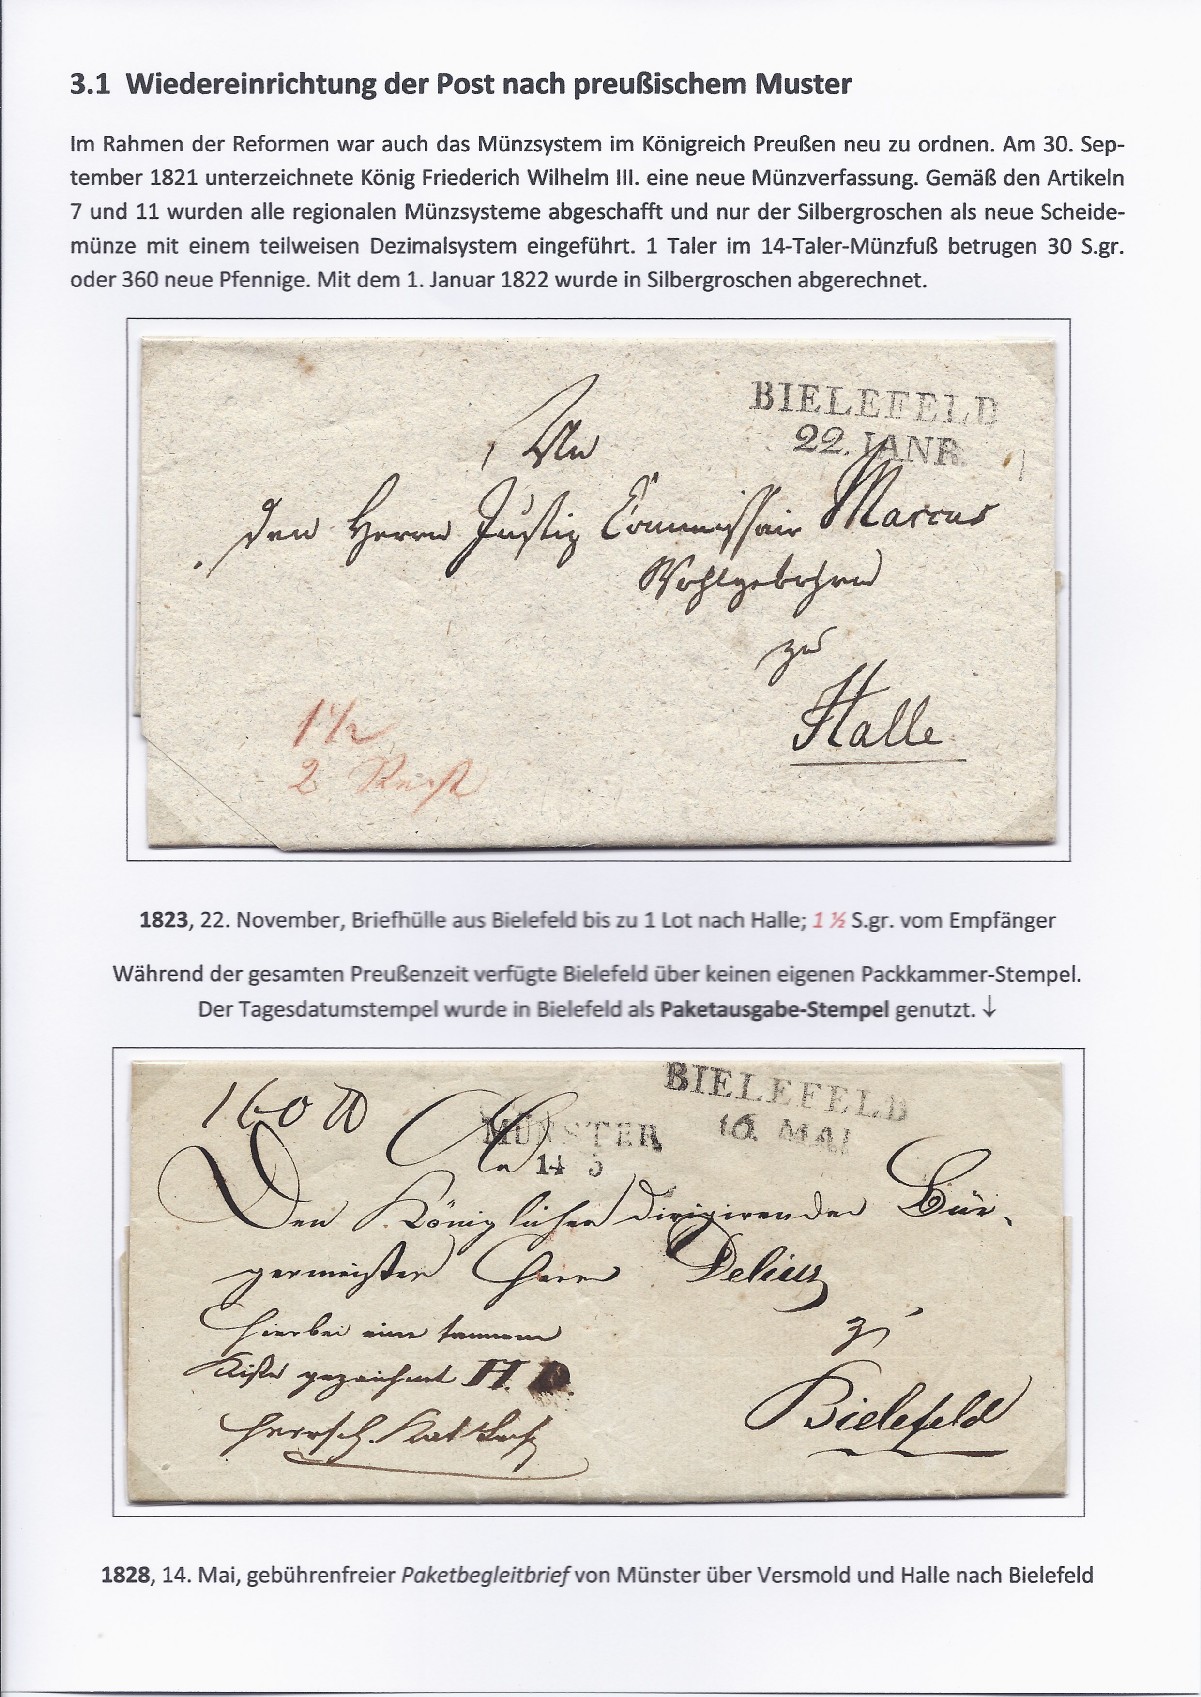 3.1 Wiedereinrichtung der Post nach preußischem Muster
Im Rahmen der Reformen war auch das Münzsystem im Königreich Preußen neu zu ordnen. Am 30. Sep-
tember 1821 unterzeichnete König Friederich Wilhelm III. eine neue Münzverfassung. Gemäß den Artikeln
7 und 11 wurden alle regionalen Münzsysteme abgeschafft und nur der Silbergroschen als neue Scheide-
münze mit einem teilweisen Dezimalsystem eingeführt. 1 Taler im 14-Taler-Münzfuß betrugen 30 S.gr.
oder 360 neue Pfennige. Mit dem 1. Januar 1822 wurde in Silbergroschen abgerechnet.
BIELEFELD
22. JANR.
An
den Herrn Justiz Commissair Marcus
Wohlgebohren
zu
Halle
1 1/2
2
1823, 22. November, Briefhülle aus Bielefeld bis zu 1 Lot nach Halle; 1 ½ S.gr. vom Empfänger
Während der gesamten Preußenzeit verfügte Bielefeld über keinen eigenen Packkammer-Stempel.
Der Tagesdatumstempel wurde in Bielefeld als Paketausgabe-Stempel genutzt. ↓
BIELEFELD
16. MAI
160
MÜNSTER
14 5
An
Den Königlichen dirigirenden Bür-
germeister Herrn Delius
zu
Bielefeld
Hierbei eine tannene
Kiste gezeichnet H. D.
1828, 14. Mai, gebührenfreier Paketbegleitbrief von Münster über Versmold und Halle nach Bielefeld